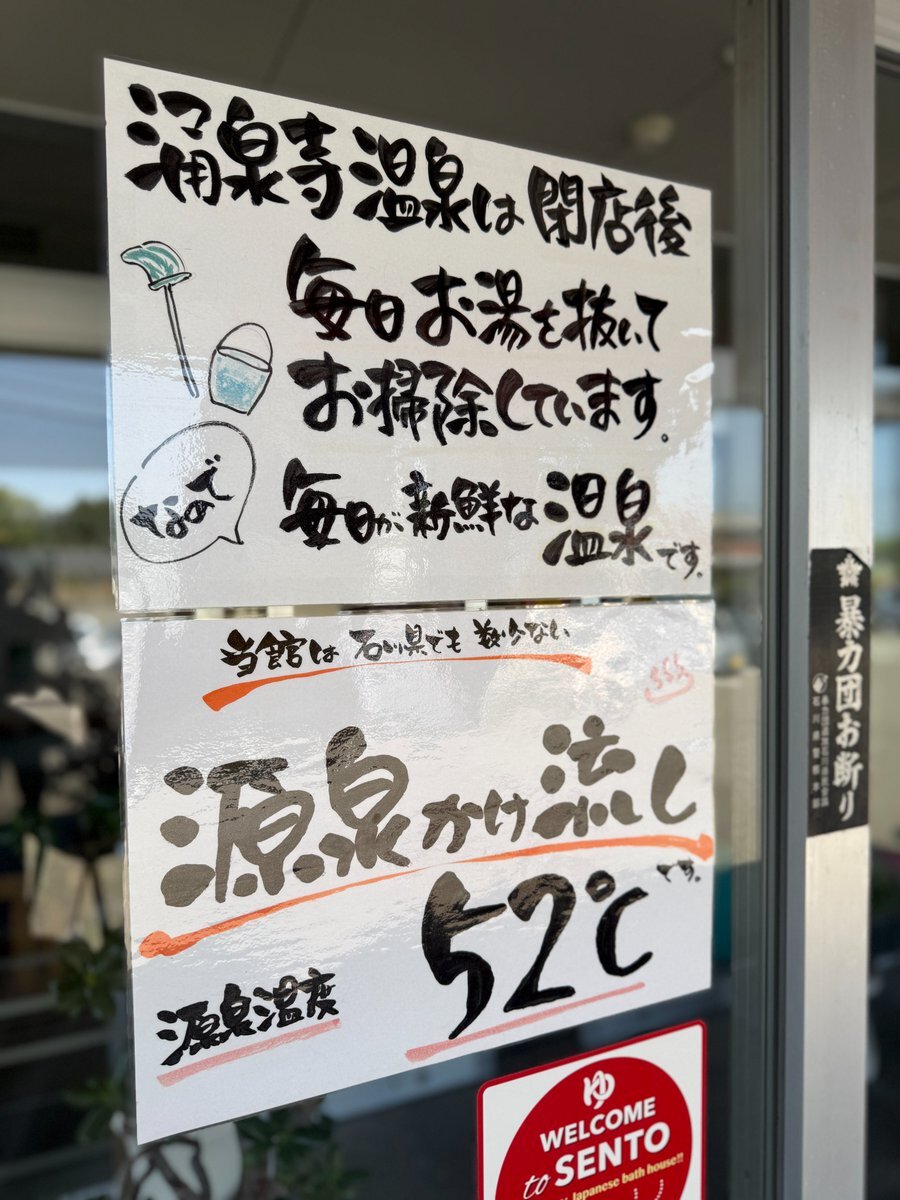 湧泉寺温泉は閉店後
毎日お湯を抜いて
お掃除しています。
なので
毎日が新鮮な温泉です。
当館は石川県でも数少ない
源泉かけ流しです。
源泉温度
52℃
暴力団お断り
ゆ
WELCOME
to SENTO
Japanese bath house!!